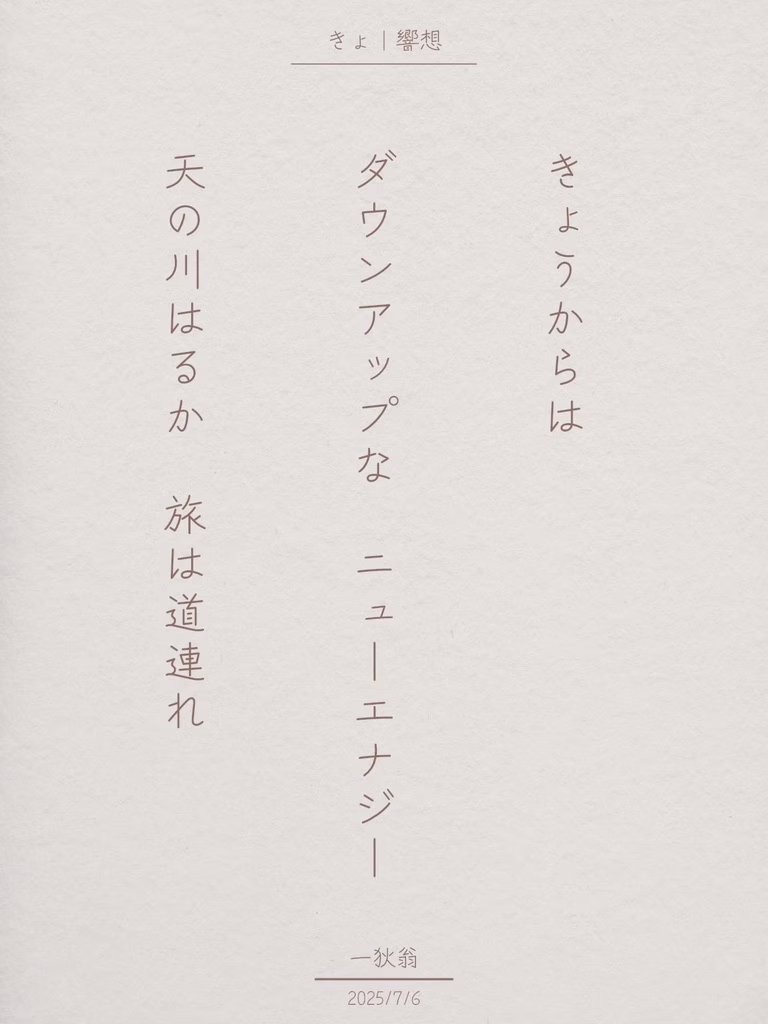 きょ｜響想
きょうからは
ダウンアップな　ニューエナジー
天の川はるか　旅は道連れ
一狄翁
2025/7/6